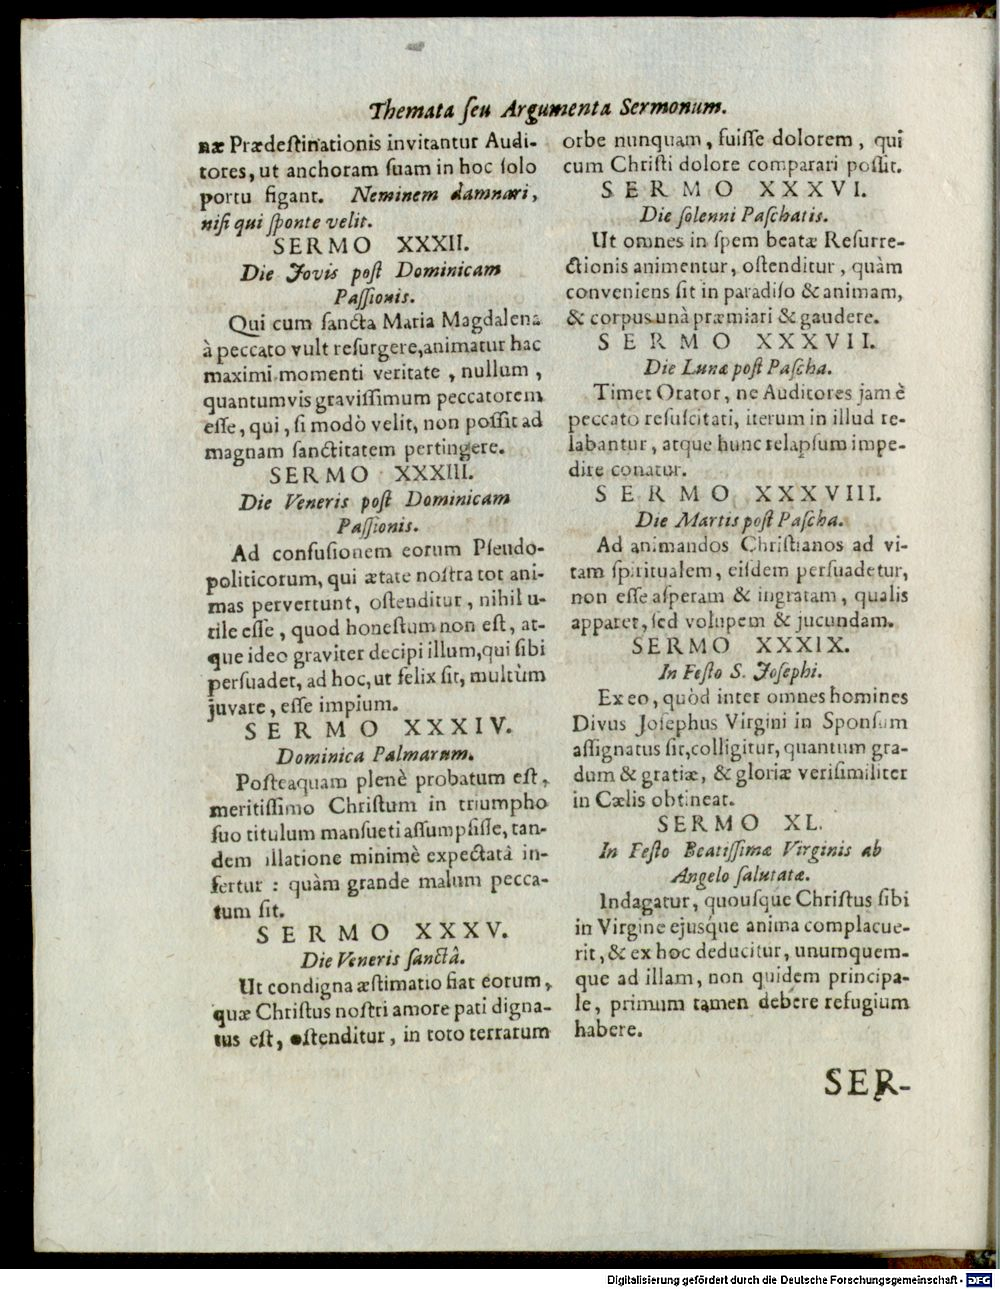 Themata ſeu Argumenta Sermonum.
næ Prædeſtinationis invitantur Audi-
tores, ut anchoram ſuam in hoc ſolo
portu figant. Neminem damnari,
niſi qui ſponte velit.
SERMO XXXII.
Die Jovis poſt Dominicam
Paſſionis.
Qui cum ſancta Maria Magdalena
à peccato vult reſurgere, animatur hac
maximi momenti veritate, nullum,
quantumvis graviſſimum peccatorem
eſſe, qui, ſi modò velit, non poſſit ad
magnam ſanctitatem pertingere.
SERMO XXXIII.
Die Veneris poſt Dominicam
Paſſionis.
Ad confuſionem eorum Pſeudo-
politicorum, qui ætate noſtra tot ani-
mas pervertunt, oſtenditur, nihil u-
tile eſſe, quod honeſtum non eſt, at-
que ideo graviter decipi illum, qui ſibi
perſuadet, ad hoc, ut felix ſit, multùm
juvare, eſſe impium.
SERMO XXXIV.
Dominica Palmarum.
Poſteaquam plenè probatum eſt,
meritiſſimo Chriſtum in triumpho
ſuo titulum manſueti aſſumpſiſſe, tan-
dem illatione minimè expectatâ in-
fertur : quàm grande malum pecca-
tum ſit.
SERMO XXXV.
Die Veneris ſanctâ.
Ut condigna æſtimatio fiat eorum,
quæ Chriſtus noſtri amore pati digna-
tus eſt, oſtenditur, in toto terrarum
orbe nunquam, fuiſſe dolorem, qui
cum Chriſti dolore comparari poſſit.
SERMO XXXVI.
Die ſolenni Paſchatis.
Ut omnes in ſpem beatæ Reſurre-
ctionis animentur, oſtenditur, quàm
conveniens ſit in paradiſo & animam,
& corpus unà præmiari & gaudere.
SERMO XXXVII.
Die Lunæ poſt Paſcha.
Timet Orator, ne Auditores jam è
peccato reſuſcitati, iterum in illud re-
labantur, atque hunc relapſum impe-
dire conatur.
SERMO XXXVIII.
Die Martis poſt Paſcha.
Ad animandos Chriſtianos ad vi-
tam ſpiritualem, eiſdem perſuadetur,
non eſſe aſperam & ingratam, qualis
apparet, ſed volupem & jucundam.
SERMO XXXIX.
In Feſto S. Joſephi.
Ex eo, quòd inter omnes homines
Divus Joſephus Virgini in Sponſum
aſſignatus ſit, colligitur, quantum gra-
dum & gratiæ, & gloriæ veriſimiliter
in Cælis obtineat.
SERMO XL.
In Feſto Beatiſſimæ Virginis ab
Angelo ſalutatæ.
Indagatur, quouſque Chriſtus ſibi
in Virgine ejuſque anima complacue-
rit, & ex hoc deducitur, unumquem-
que ad illam, non quidem principa-
le, primum tamen debere refugium
habere.
SER-
Digitalisierung gefördert durch die Deutsche Forschungsgemeinschaft - DFG